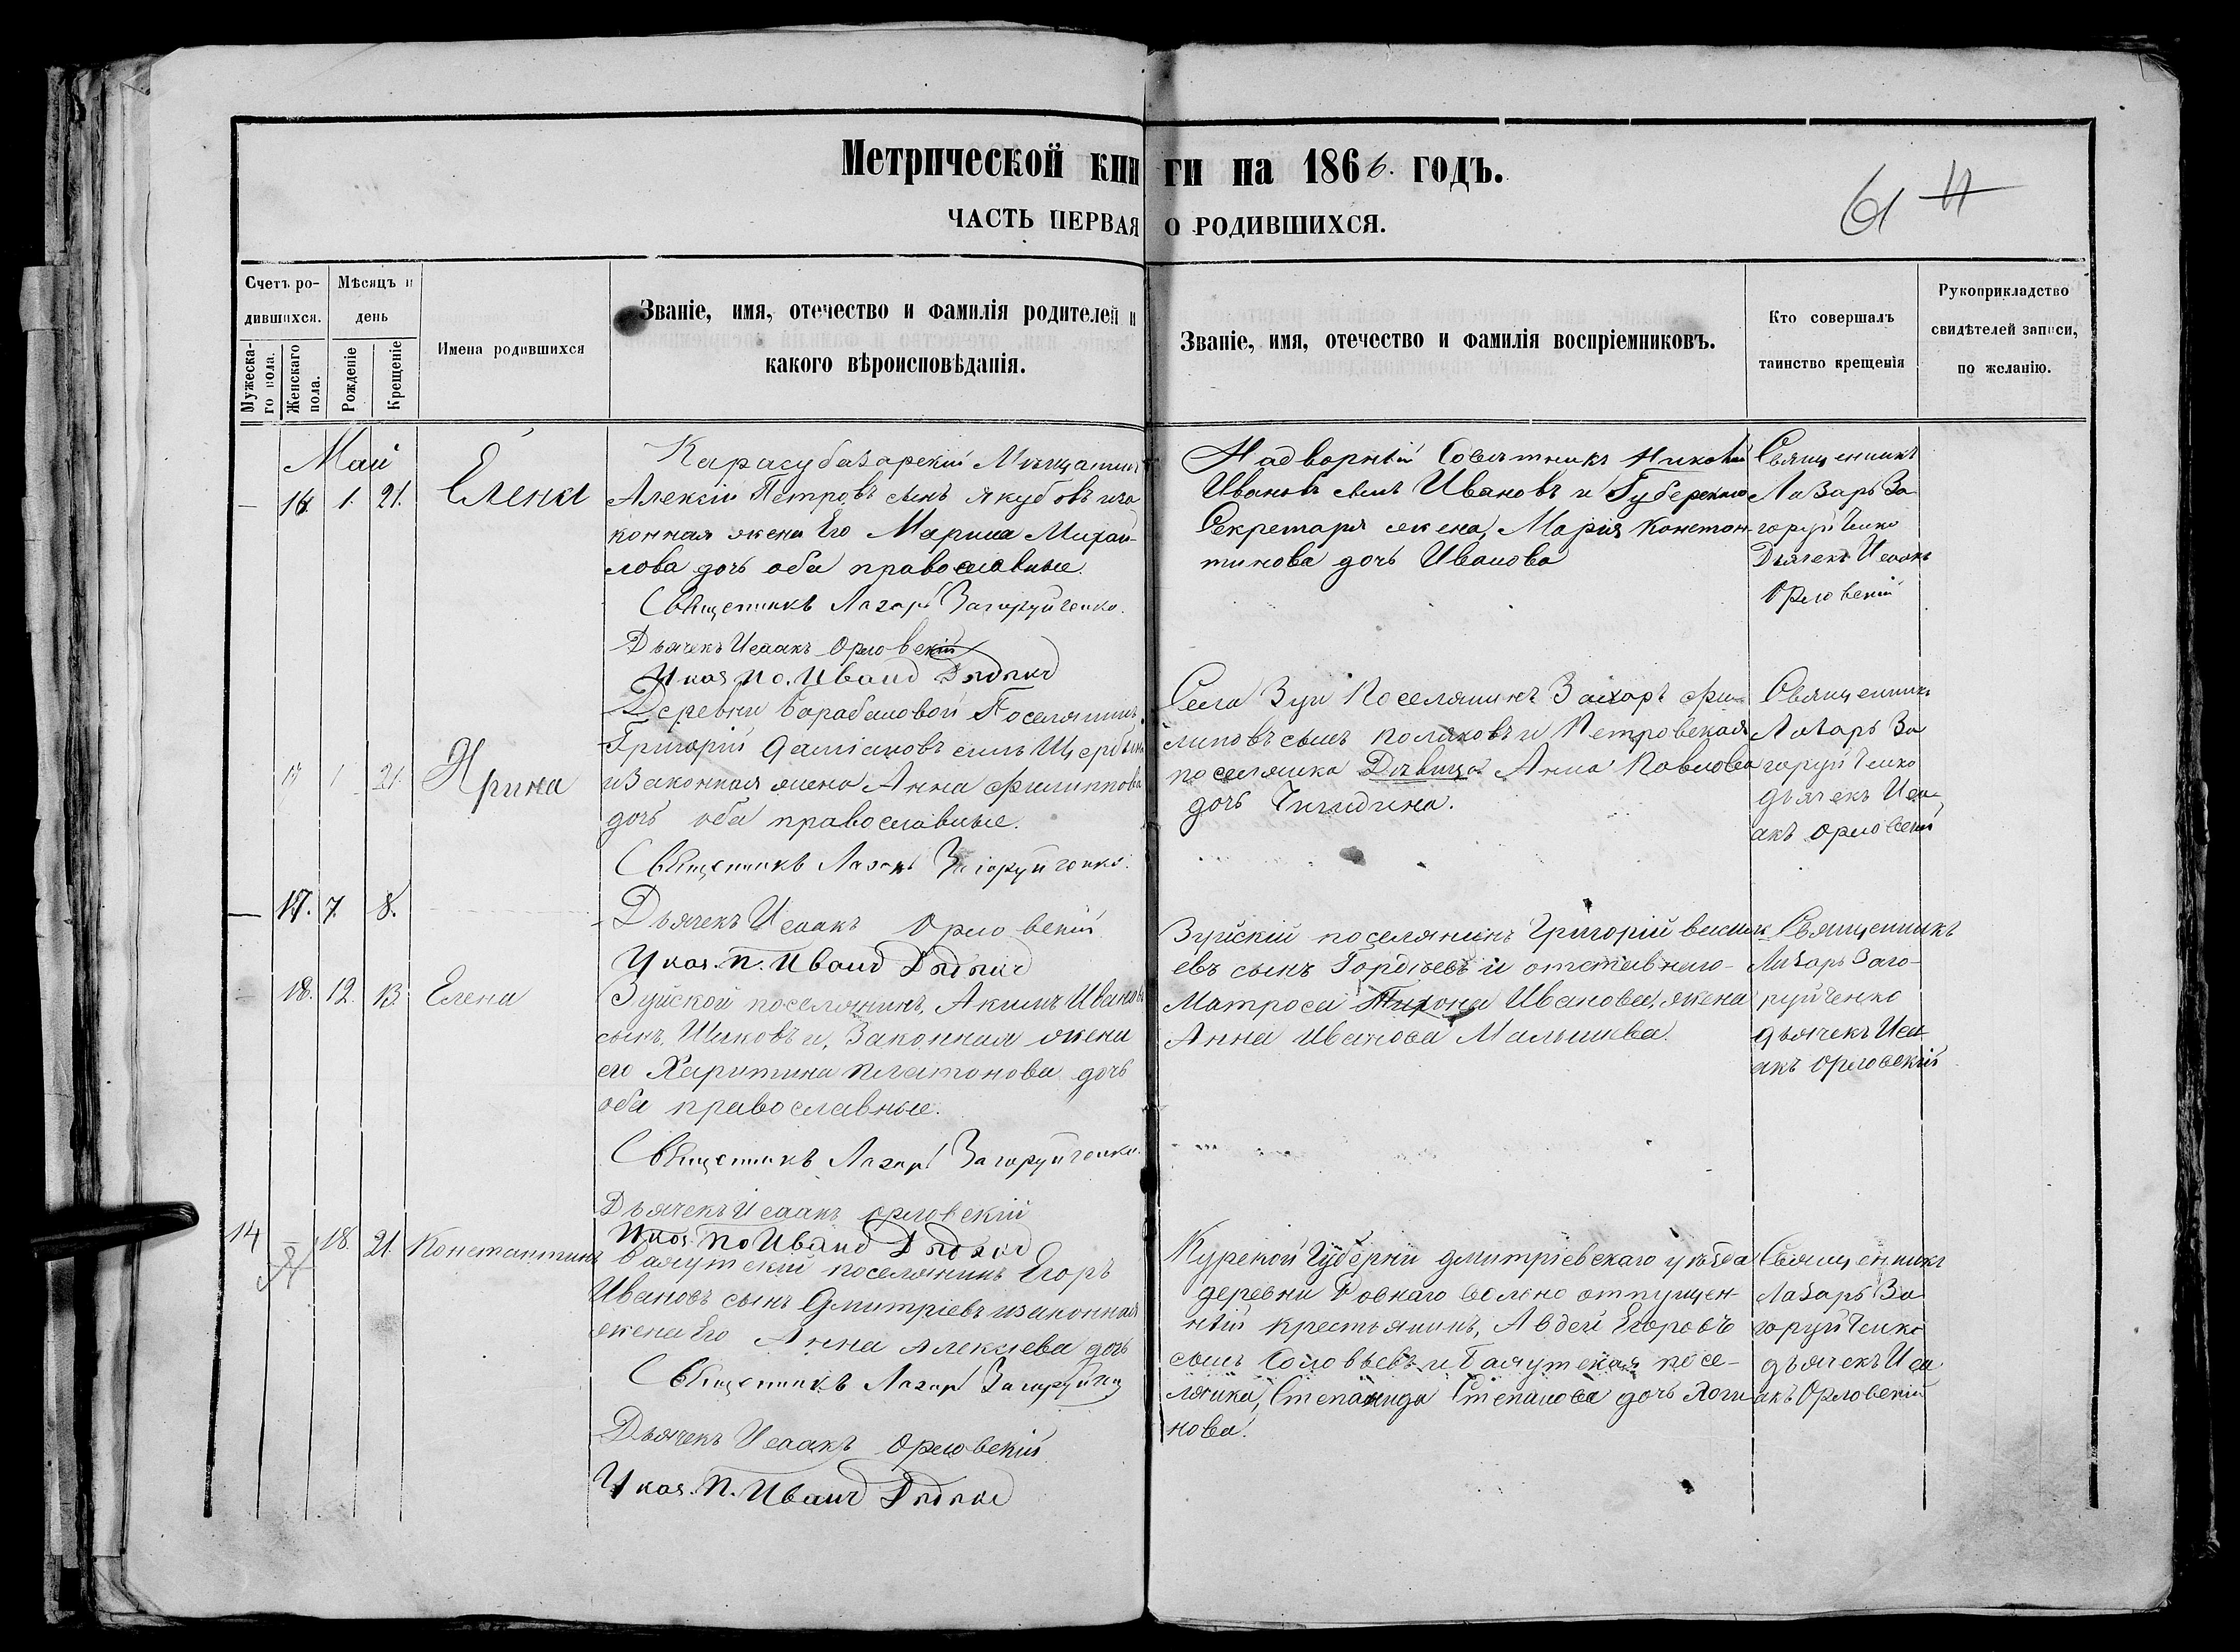 Метрической книги на 1866. годъ.
61 11
ЧАСТЬ ПЕРВАЯ О РОДИВШИХСЯ.
Счетъ родившихся.
Мужескаго пола.
Женскаго пола.
Мѣсяцъ и день
Рожденіе
Крещеніе
Имена родившихся
Званіе, имя, отечество и фамилія родителей и
какого вѣроисповѣданія.
Званіе, имя, отечество и фамилія воспріемниковъ.
Кто совершалъ
таинство крещенія
Рукоприкладство
свидѣтелей записи,
по желанію.
Май
— 16 1. 21. Елена
Карасубазарскій Мѣщанинъ
Алексій Петровъ сынъ Якубовъ иза
конная жена Его Марина Михай-
лова дочь оба православные.
Священникъ Лазарь Загоруйченко.
Дьячекъ Исаакъ Орловскій
Указ. по. Иванъ
Надворный Совѣтникъ Николай
Ивановъ сынъ Ивановъ и Губернскаго
Секретаря жена, Марія Констан-
тинова дочь Иванова
Священникъ
Лазарь За
горуйченко
Дьячекъ Исаакъ
Орловскій
17 1 21. Ирина
Деревни Барабановой Поселянинъ
Григорій Даміановъ сынъ Щербина
и Законная жена Анна Филиппова
дочь оба православные.
Священникъ Лазарь Загоруйченко.
Села Зуи Поселянинъ Захаръ Фи-
липовъ сынъ Поляковъ и Петровская
поселянка Дѣвица Анна Павлова
дочь
Священникъ
Лазарь За
горуйченко
дьячекъ Иса-
акъ Орловскій
— 17. 7. 8.
Дьячекъ Исаакъ Орловскій
Указ. п. Иванъ
— 18. 12. 13. Елена
Зуйской поселянинъ, Акимъ Ивановъ
сынъ, Шиковъ и, Законная жена
его Харитина Платонова дочь
оба православные.
Священникъ Лазарь Загоруйченко.
Дьячекъ Исаакъ Орловскій
Указ. по Иванъ
Зуйскій поселянинъ Григорій
евъ сынъ Гордѣевъ и отставнаго
Матроса Тихона Иванова, жена
Анна Иванова Малышева.
Священникъ
Лазарь Заго-
руйченко
дьячекъ Иса
акъ Орловскій
14 — 18. 21. Константинъ
поселянинъ Егоръ
Ивановъ сынъ Дмитріевъ и законная
жена Его Анна Алексѣева дочь
Священникъ Лазарь
Дьячекъ Исаакъ Орловскій
Указ. п. Иванъ
Курской Губерніи Дмитріевскаго уѣзда
деревни Ровнаго вольно отпущен-
ный крестьянинъ, Авдей Егоровъ
сынъ Соловьевъ и посе-
лянка, Степанида Степанова дочь Логи-
нова.
Священникъ
Лазарь За
горуйченко
дьячекъ Иса
акъ Орловскій